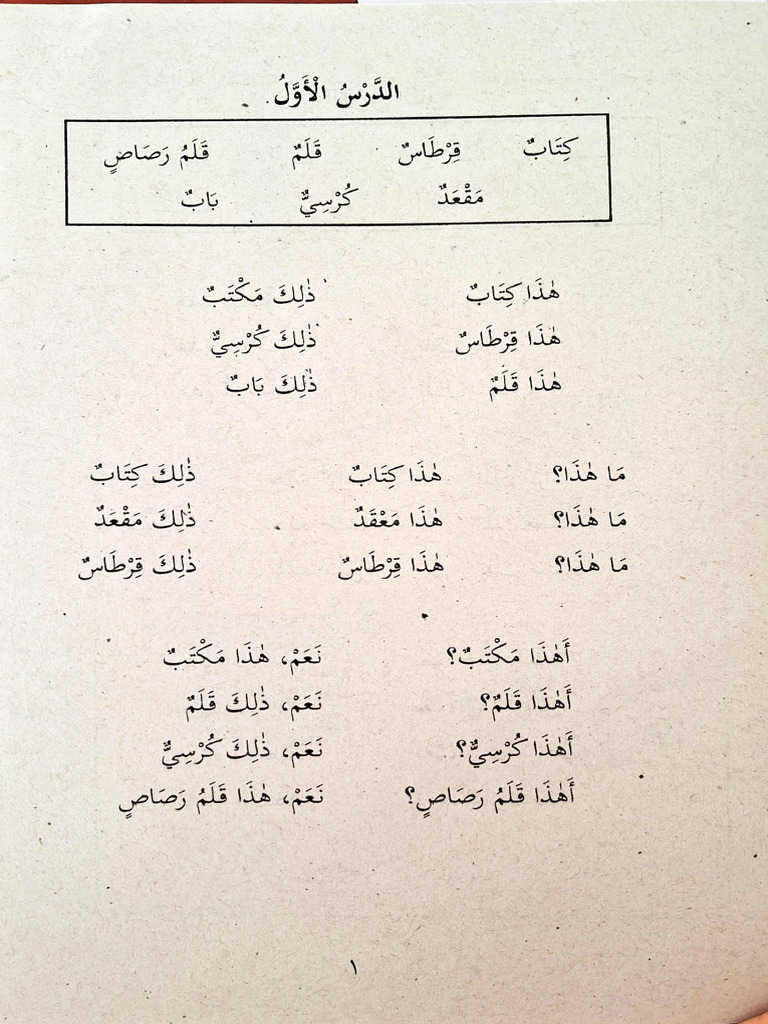 الدَّرْسُ الْأَوَّلُ
كِتَابٌ قِرْطَاسٌ قَلَمٌ قَلَمُ رَصَاصٍ
مَقْعَدٌ كُرْسِيٌّ بَابٌ
هٰذَا كِتَابٌ ذٰلِكَ مَكْتَبٌ
هٰذَا قِرْطَاسٌ ذٰلِكَ كُرْسِيٌّ
هٰذَا قَلَمٌ ذٰلِكَ بَابٌ
مَا هٰذَا؟ هٰذَا كِتَابٌ ذٰلِكَ كِتَابٌ
مَا هٰذَا؟ هٰذَا مَعْقَدٌ ذٰلِكَ مَقْعَدٌ
مَا هٰذَا؟ هٰذَا قِرْطَاسٌ ذٰلِكَ قِرْطَاسٌ
أَهٰذَا مَكْتَبٌ؟ نَعَمْ، هٰذَا مَكْتَبٌ
أَهٰذَا قَلَمٌ؟ نَعَمْ، ذٰلِكَ قَلَمٌ
أَهٰذَا كُرْسِيٌّ؟ نَعَمْ، ذٰلِكَ كُرْسِيٌّ
أَهٰذَا قَلَمُ رَصَاصٍ؟ نَعَمْ، هٰذَا قَلَمُ رَصَاصٍ
١